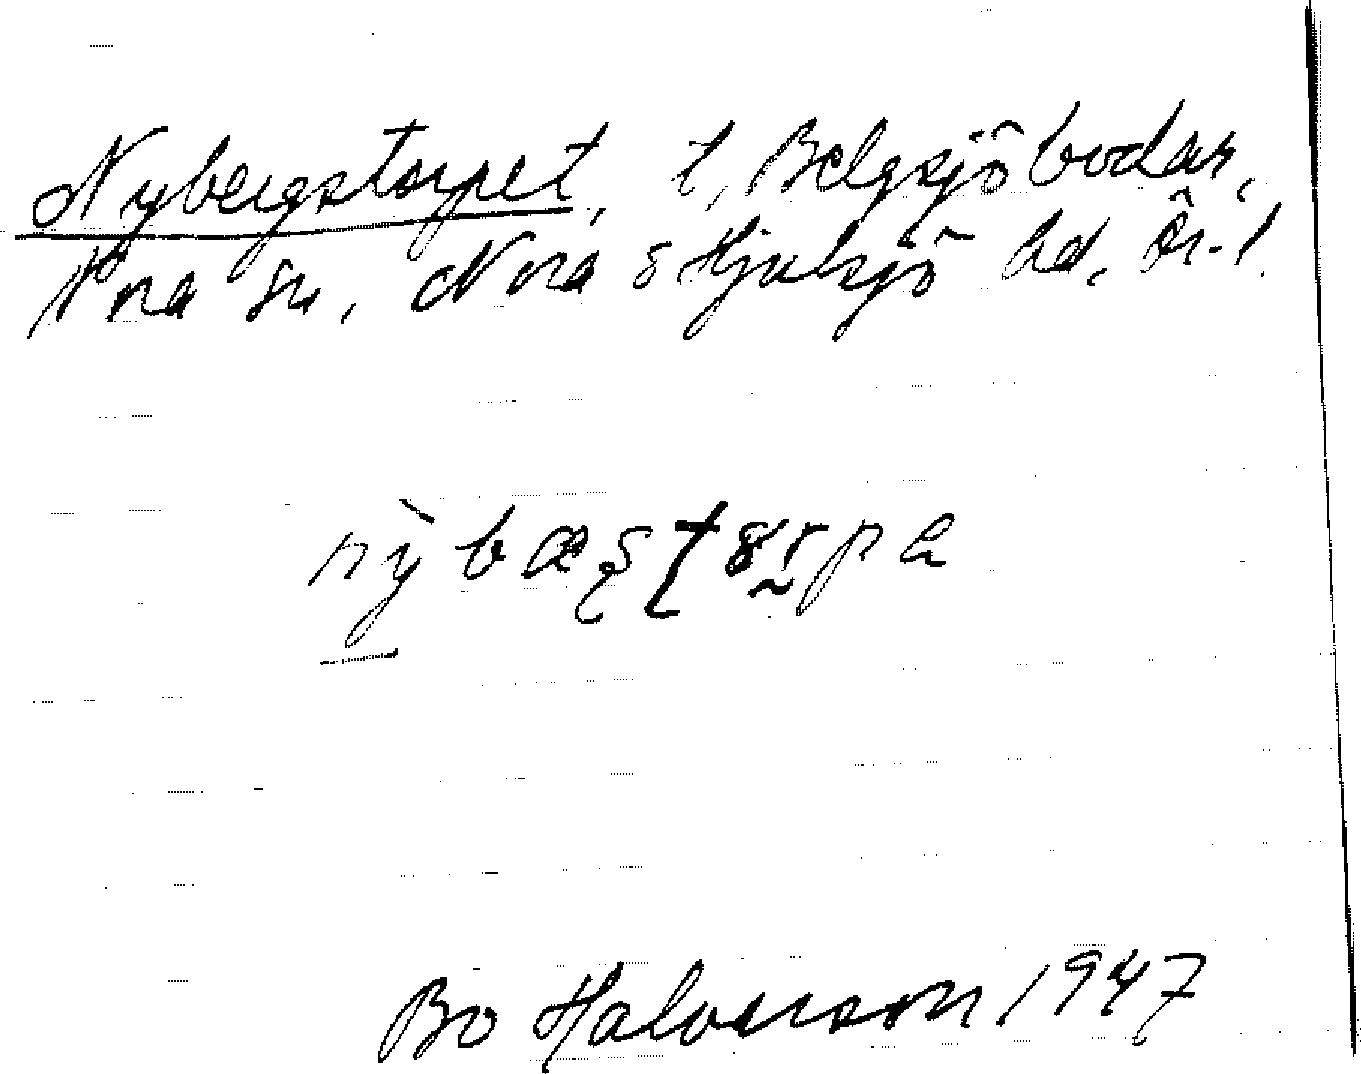 Nybergstorpet, t, Bergsjöbodar,
Nora sn, Nora o Hjulsjö hd, Ör. l.
nỳbæʂʈɤrpa
Bo Halverson 1947